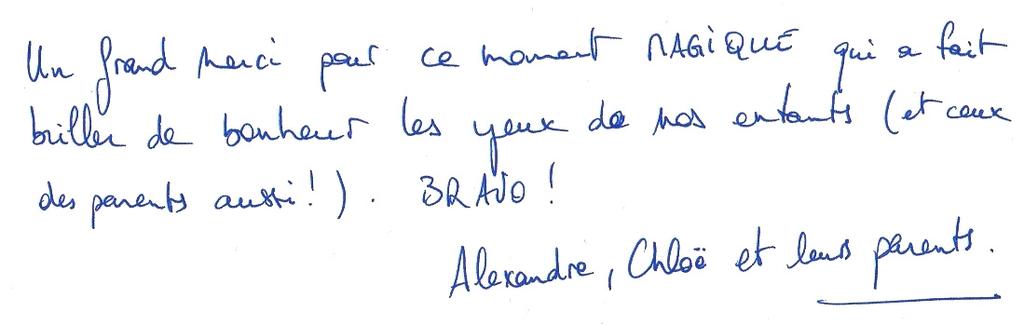 Un grand merci pour ce moment MAGiQUE qui a fait
briller de bonheur les yeux de nos enfants (et ceux
des parents aussi!). BRAVO !
Alexandre, Chloë et leurs parents.